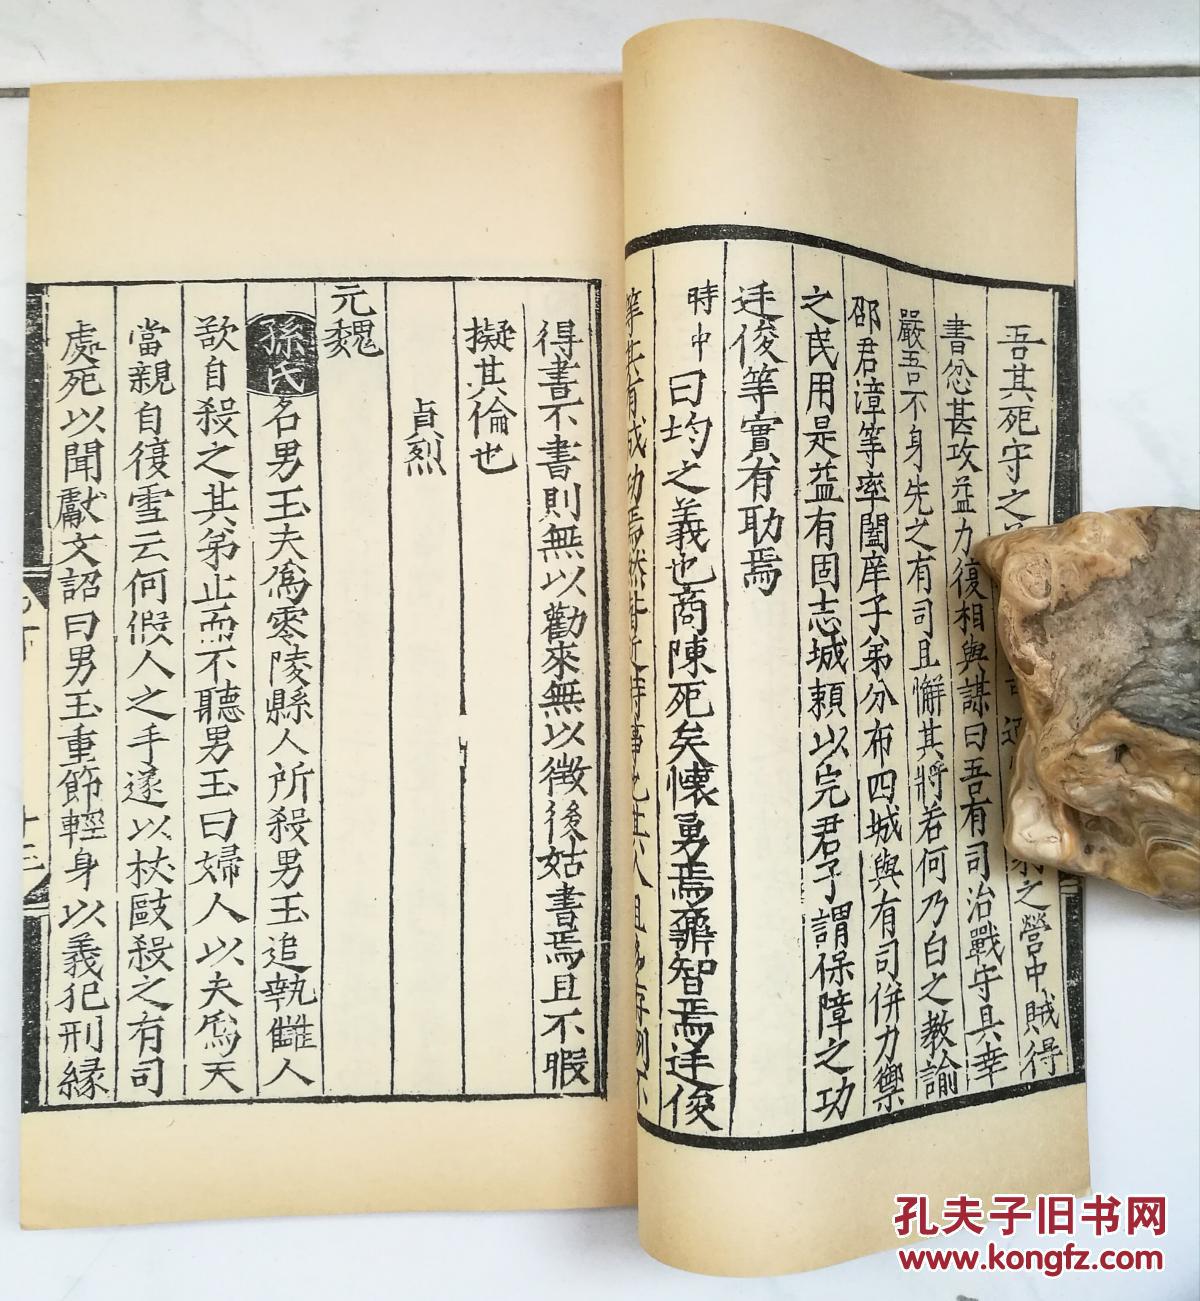 吾其死守之
之營中賊得
書忿甚攻益力復相與謀曰吾有司治戰守具幸
嚴吾不身先之有司且懈其將若何乃白之教諭
邵君漳等率闔庠子弟分布四城與有司併力禦
之民用是益有固志城頼以完君子謂保障之功
廷俊等實有助焉
時中曰圴之義也商陳死矣懷勇焉齋智焉廷俊
得書不書則無以勸來無以徵後姑書焉且不暇
擬其倫也
貞烈
元魏
孫氏名男玉夫爲零陵縣人所殺男玉追執讎人
欲自殺之其弟止而不聽男玉曰婦人以夫爲天
當親自復雪云何假人之手遂以杖毆殺之有司
處死以聞獻文詔曰男玉重節輕身以義犯刑緣
孔夫子旧书网
www.kongfz.com